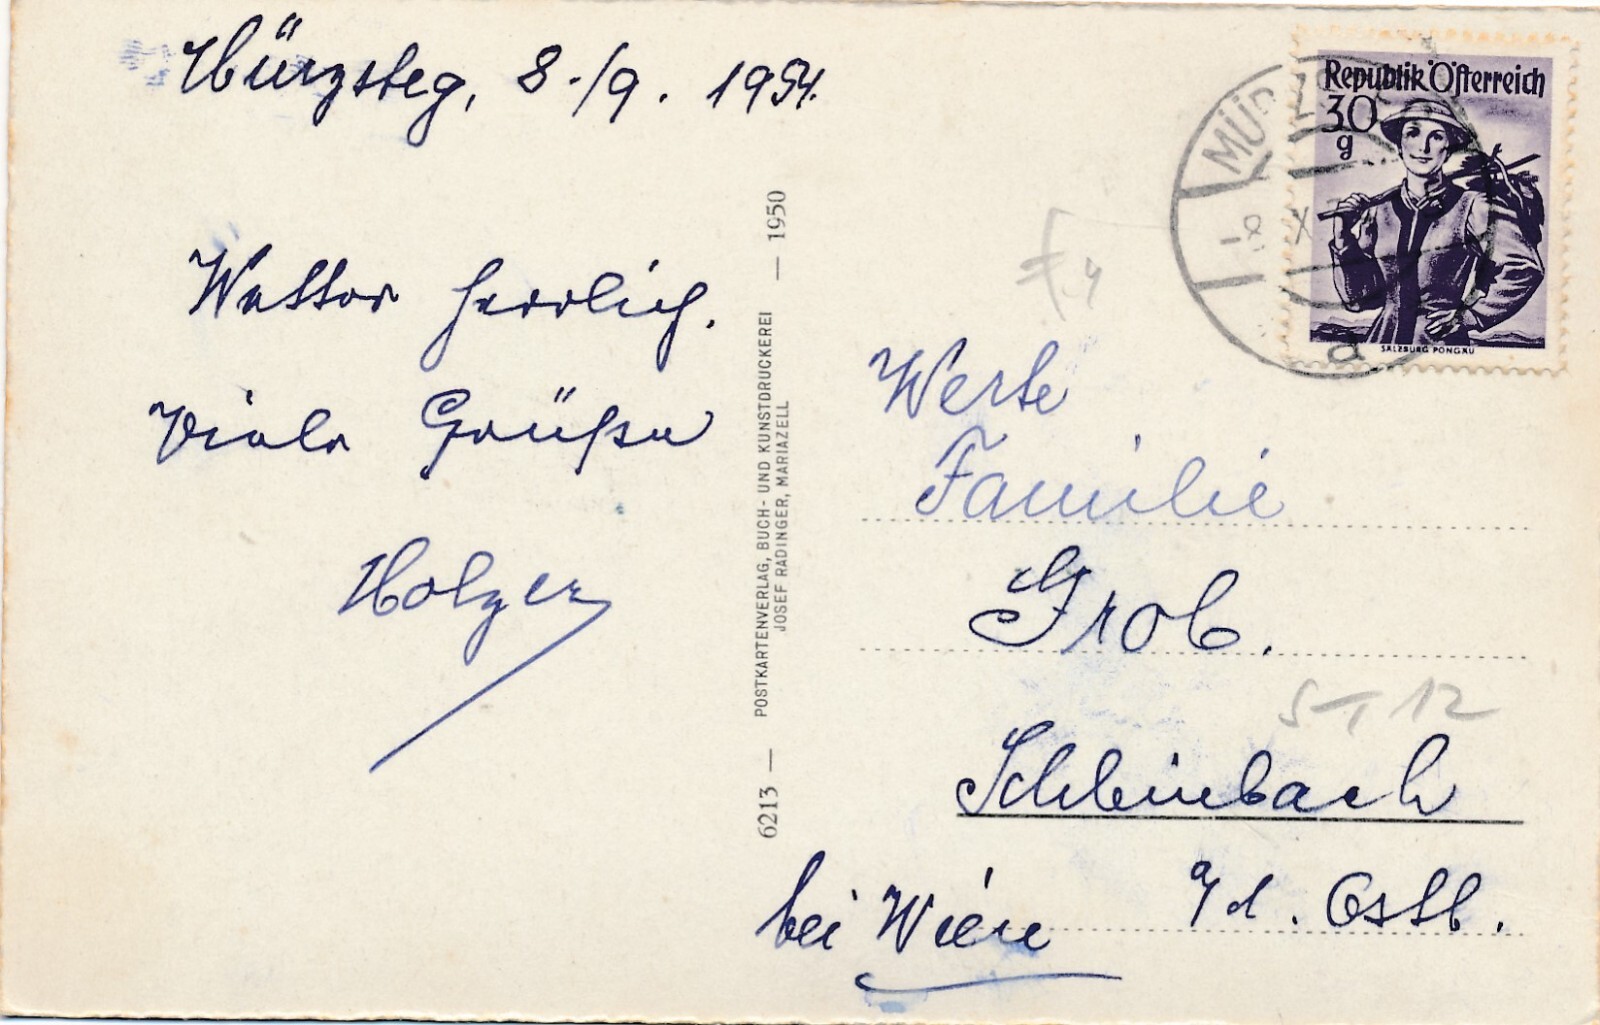 Mürzsteg, 8./9. 1954.
Wetter herrlich.
Viele Grüße
Holzer
6213 — POSTKARTENVERLAG, BUCH- UND KUNSTDRUCKEREI — 1950
JOSEF RADINGER, MARIAZELL
Republik Österreich
30
g
SALZBURG PONGAU
MÜRZ
-8. X
a
F.4
Werte
Familie
Grob.
ST 12
Schleinbach
a/d. Ostb.
bei Wien